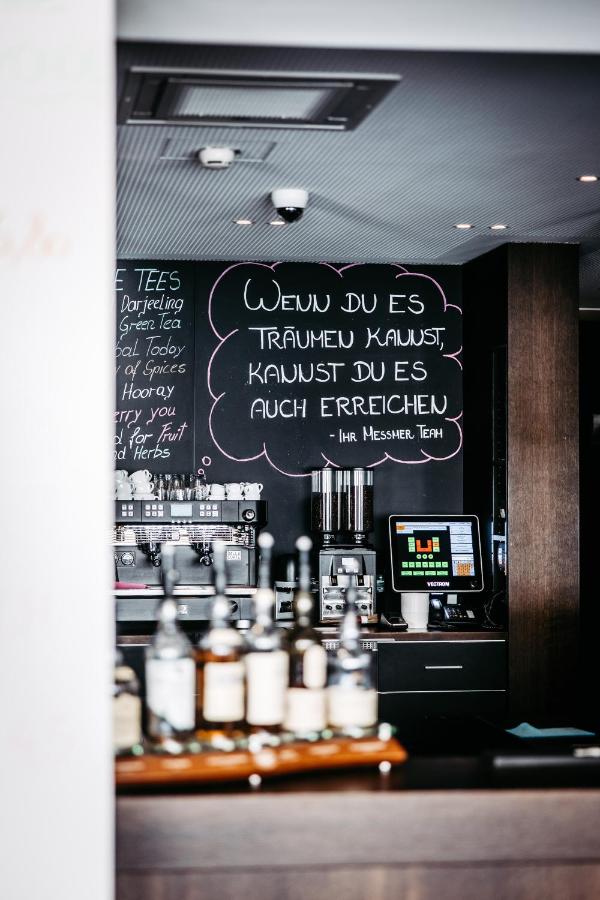 TEES
Darjeeling
Green Tea
Today
of Spices
Hooray
you
for Fruit
Herbs
WENN DU ES
TRÄUMEN KANNST,
KANNST DU ES
AUCH ERREICHEN
- IHR MESSMER TEAM
VECTRON